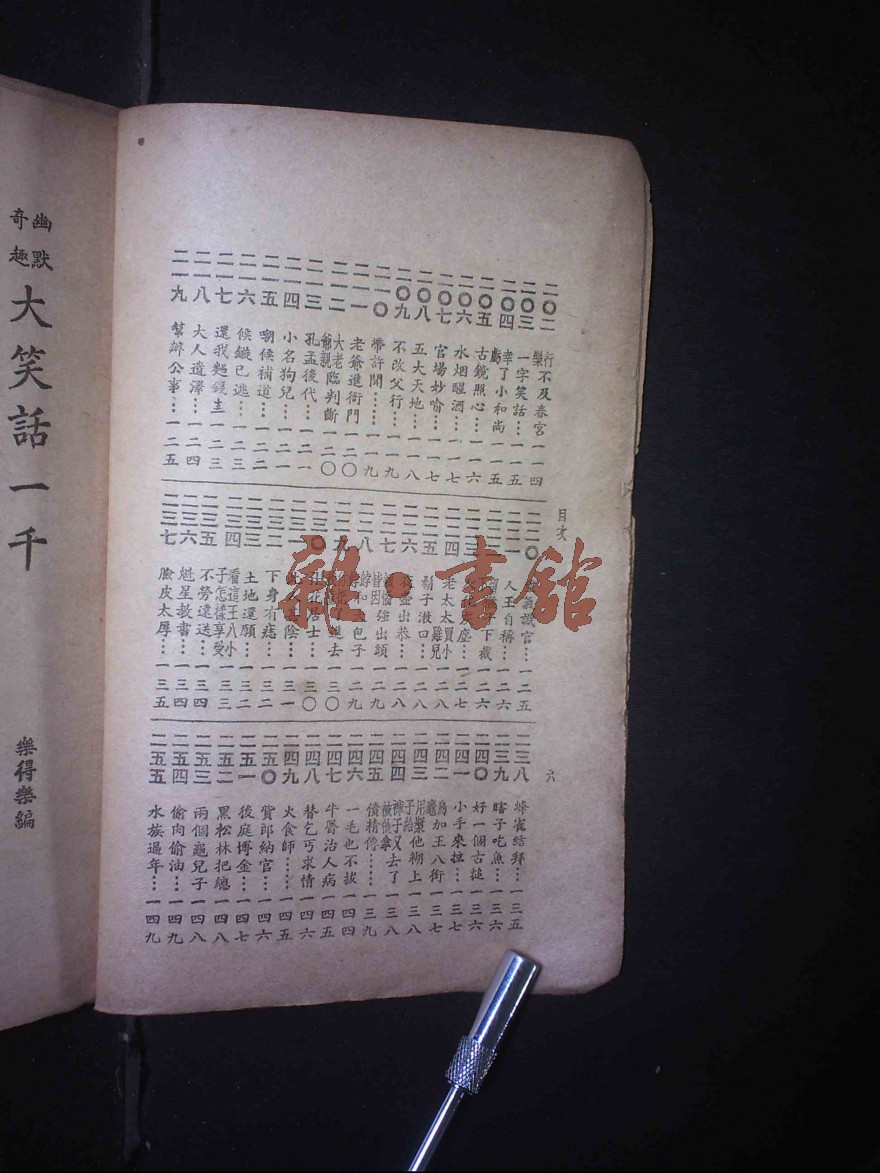 目次
六
二〇二 行樂不及春宮 一一四
二〇三 一字笑話… 一一五
二〇四 幸虧了小和尚 一一五
二〇五 古鏡照心… 一一六
二〇六 水烟醒酒… 一一七
二〇七 官場妙喻… 一一七
二〇八 五大天地… 一一八
二〇九 不改父行… 一一九
二一〇 帶許閙… 一一九
二一一 老爺進衙門 一二〇
二一二 大老爺親臨判斷 一二〇
二一三 孔孟後代… 一二一
二一四 小名狗兒… 一二一
二一五 嘲候補道… 一二二
二一六 候鍛已逃… 一二三
二一七 還我麵錢去 一二三
二一八 大人遺澤… 一二四
二一九 幫辦公事… 一二五
二二〇 官… 一二五
二二一 人王自稱… 一二六
二二二 下截 一二六
二二三 座… 一二七
二二四 老太太買小雞兒 一二八
二二五 鬍子漱口… 一二八
二二六 出恭… 一二八
二二七 皆因強出頭 一二九
二二八 和包子 一二九
二二九 進去 一三〇
二三〇 居士… 一三〇
二三一 陰… 一三一
二三二 下身有痣… 一三二
二三三 土地還願… 一三二
二三四 看這王八小子怎樣享受 一三三
二三五 不勞遠送… 一三四
二三六 魁星教書… 一三四
二三七 臉皮太厚… 一三五
二三八 蜂雀結拜… 一三五
二三九 瞎子吃魚… 一三六
二四〇 好一個古搥 一三六
二四一 小手來拉… 一三七
二四二 烏龜加王八銜 一三七
二四三 用漿子給他糊上 一三八
二四四 褲子又被他拿去了 一三八
二四五 債精傳…… 一三九
二四六 一毛也不拔 一四四
二四七 牛屠治人病 一四五
二四八 替乞丐求情 一四六
二四九 火食師…… 一四五
二五〇 貲郎納官… 一四六
二五一 後庭博金… 一四七
二五二 黑松林把總 一四八
二五三 兩個龜兒子 一四八
二五四 偷肉偷油… 一四九
二五五 水族過年… 一四九
幽默
奇趣
大笑話一千
樂得樂編
雜·書館